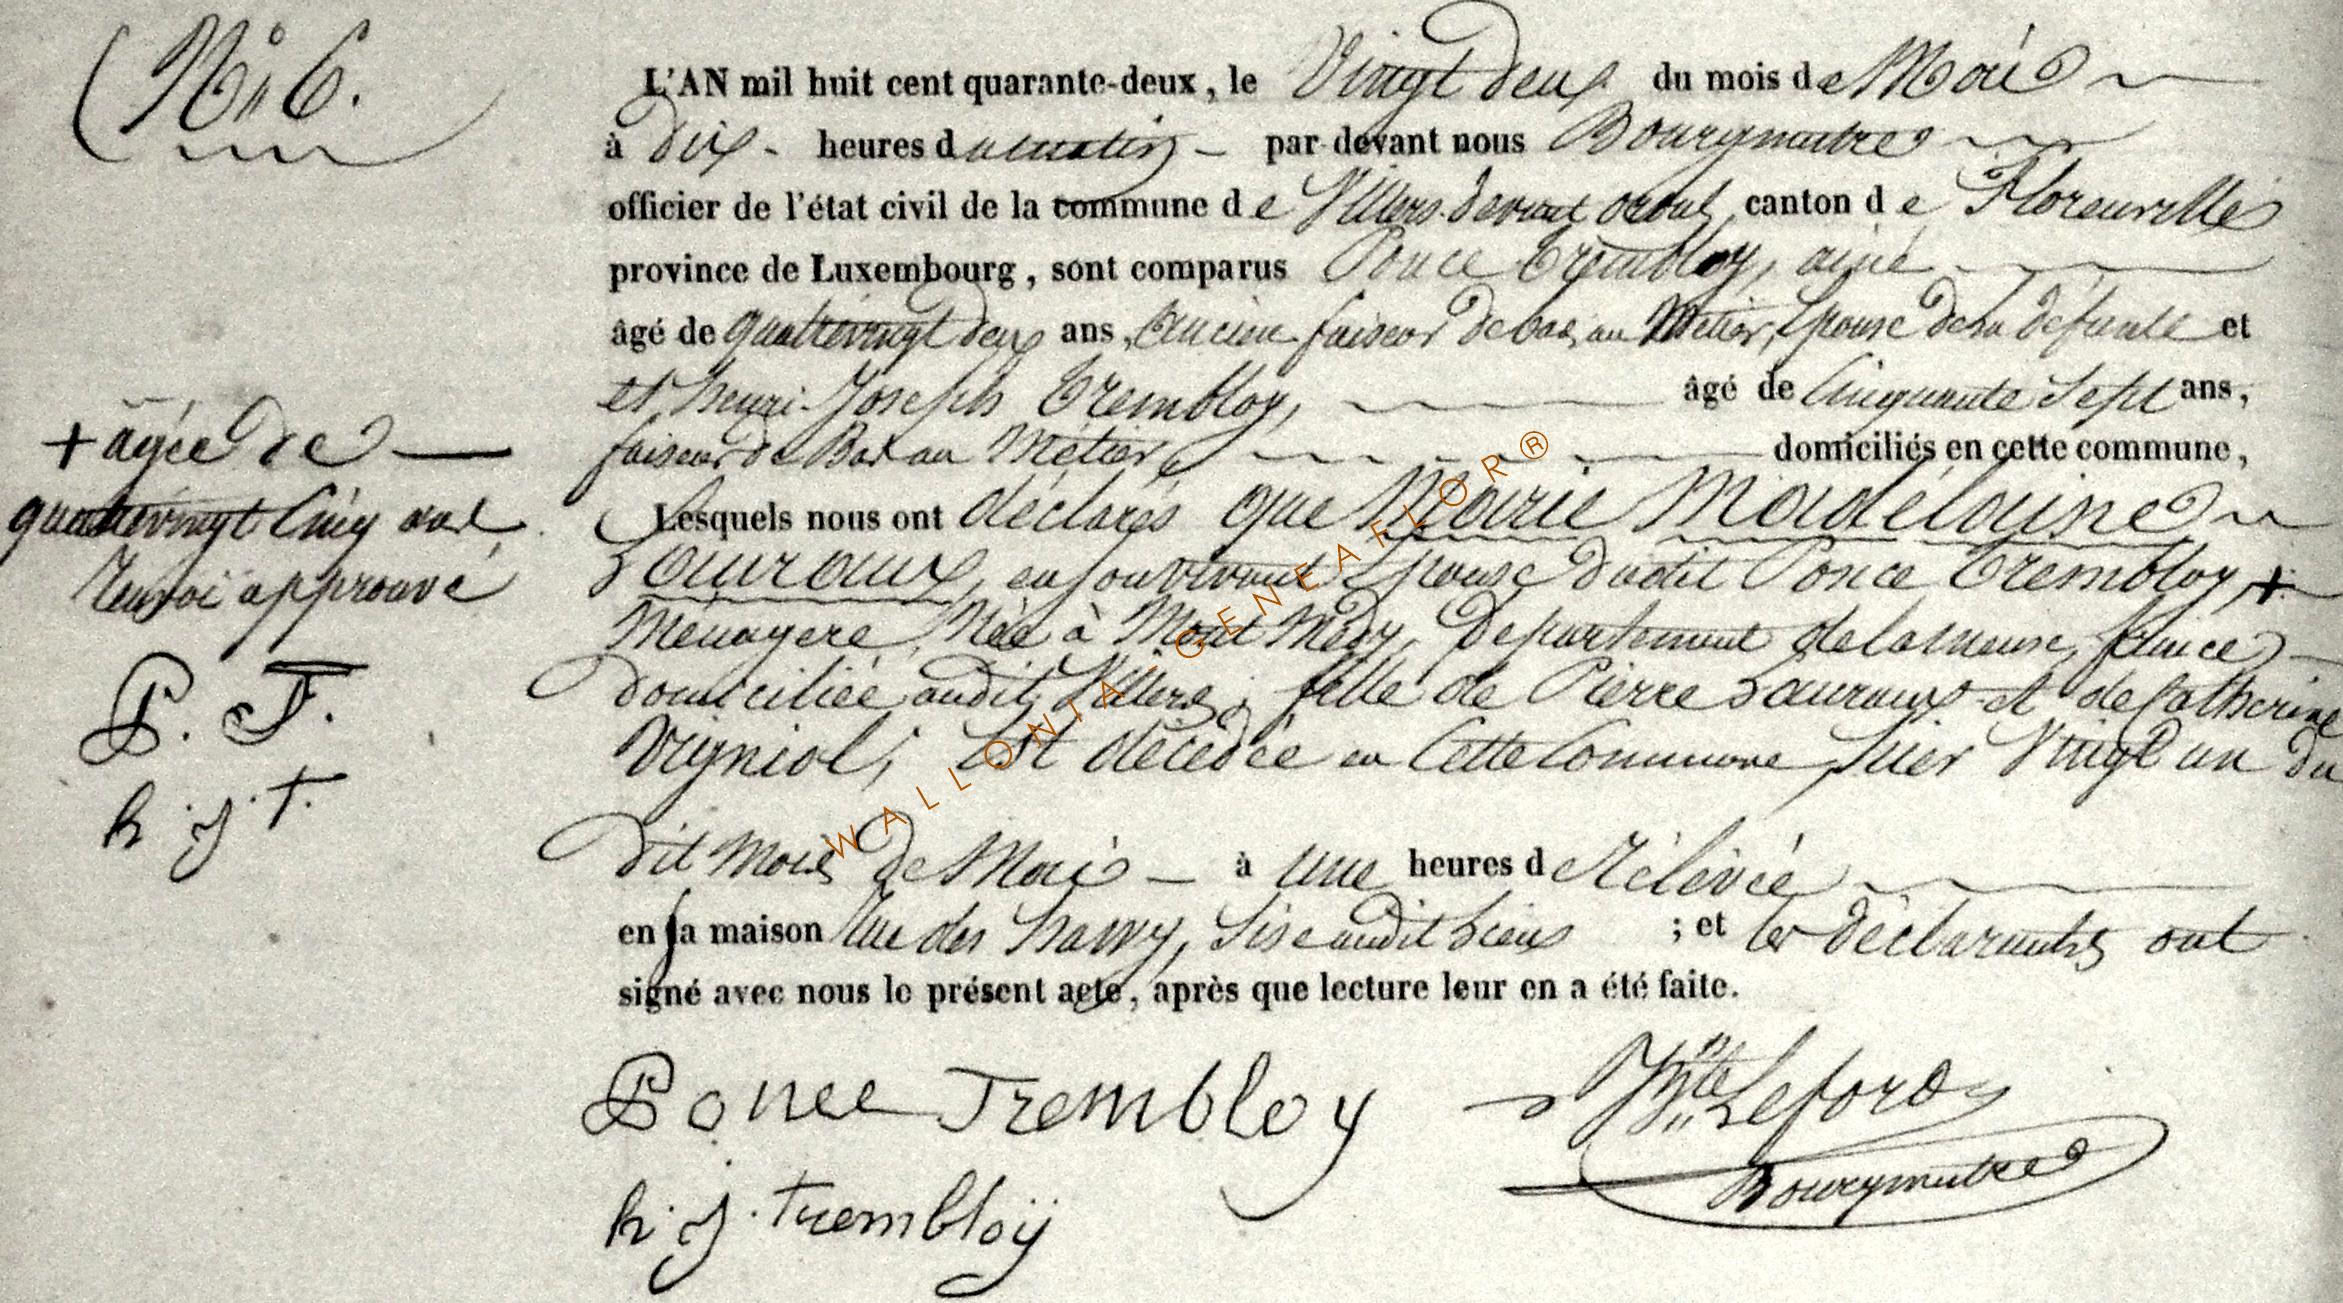 N° 6.
L'AN mil huit cent quarante-deux, le Vingt deux du mois de Mai
à dix heures du matin par devant nous Bourgmestre
officier de l'état civil de la commune de Villers devant orval, canton de Florenville
province de Luxembourg, sont comparus Ponce Trembloy, ainé
âgé de quatrevingt deux ans, Ancien faiseur de bas au Métier, Epoux de la défunte et
et henri-Joseph Trembloy, âgé de Cinquante Sept ans,
faiseur de Bas au Métier, domiciliés en cette commune,
Lesquels nous ont déclarés que Marie Madélaine
Lauraux, en son vivant Epouse dudit Ponce Trembloy, +
Ménagere, Née à Mont Médy, Departement de la meuse, france
domiciliée audit Villers, fille de Pierre Lauraux et de Catherine
Vigniol, Est décédée en Cette Commune, hier Vingt un du
dit Mois de Mai à une heures de Rélévée
en sa maison Rue des hawy, Sise audit Lieus ; et les déclarants ont
signé avec nous le présent acte, après que lecture leur en a été faite.
+ agée de
quatrevingt Cinq ans
Renvoi approuvé
P. T.
h. j. t.
Ponce Trembloy
h. j. trembloÿ
Lefort
Bourgmestre
WALLONIA-GENEAFLOR®